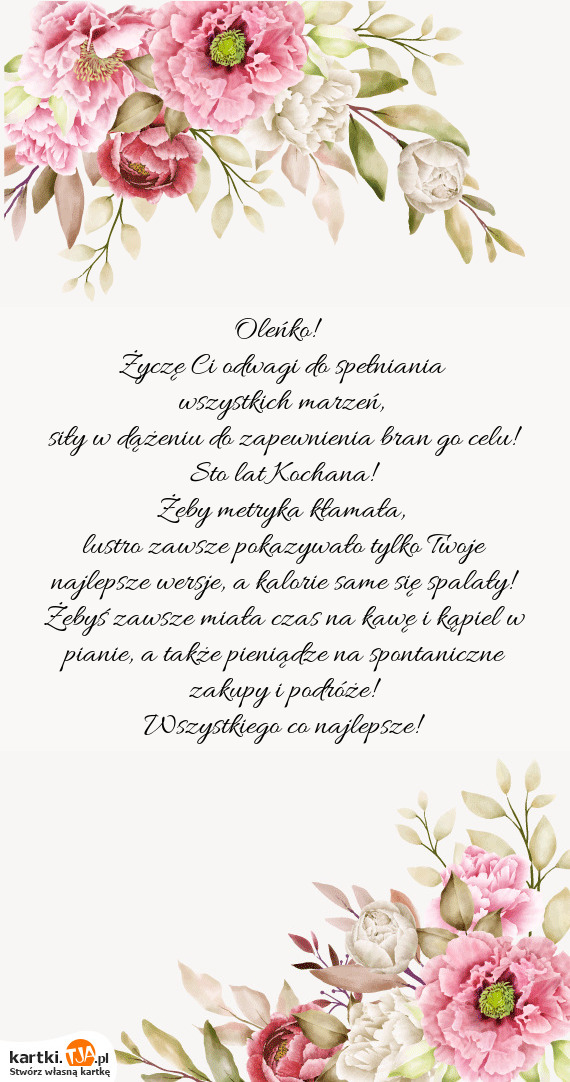 Oleńko!
Życzę Ci odwagi do spełniania
wszystkich marzeń,
siły w dążeniu do zapewnienia bran go celu!
Sto lat Kochana!
Żeby metryka kłamała,
lustro zawsze pokazywało tylko Twoje
najlepsze wersje, a kalorie same się spalały!
Żebyś zawsze miała czas na kawę i kąpiel w
pianie, a także pieniądze na spontaniczne
zakupy i podróże!
Wszystkiego co najlepsze!
kartki.TJA.pl
Stwórz własną kartkę